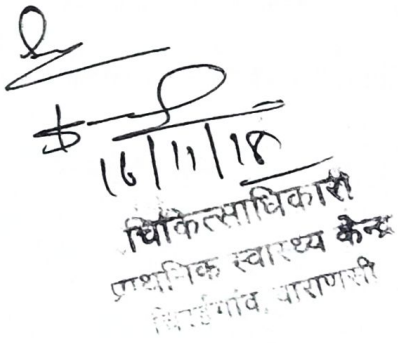 16/11/18
चिकित्साधिकारी
प्राथमिक स्वास्थ्य केन्द्र
चिरईगांव, वाराणसी